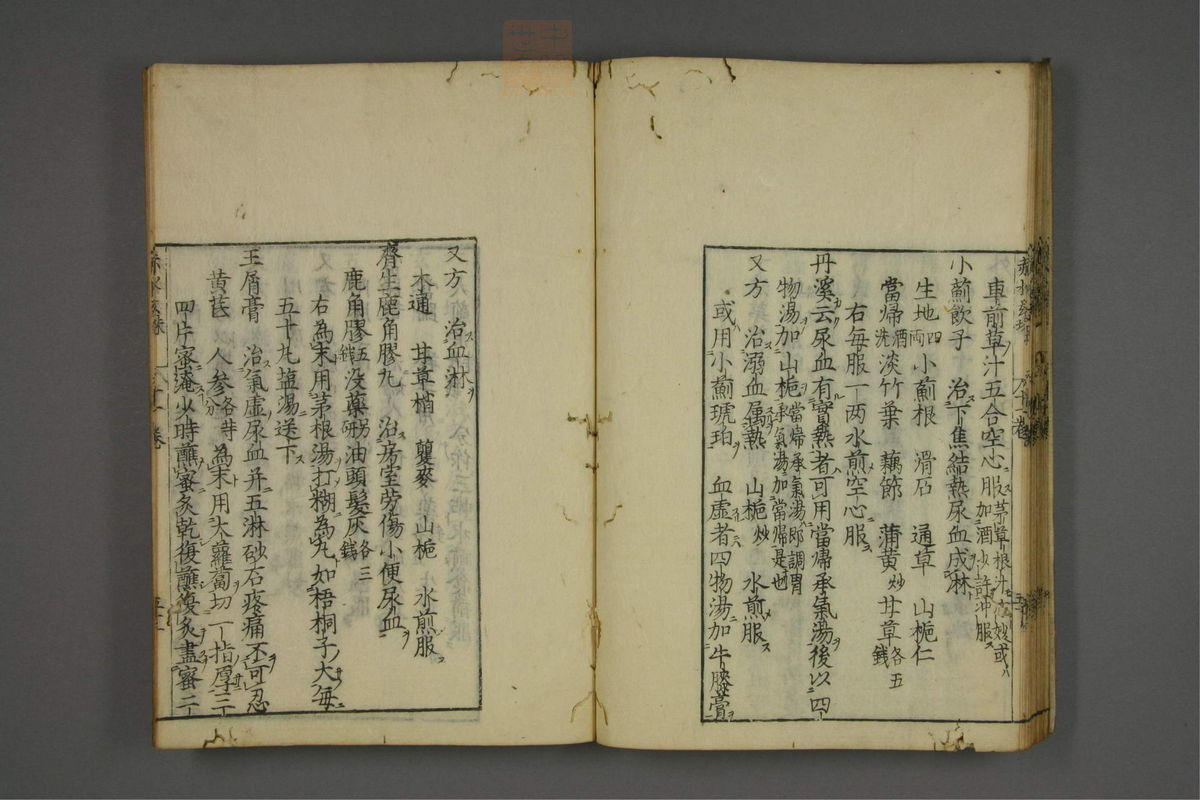 車前草汁五合空心服茅草根汁亦妙或加酒少許沖服
小薊飲子　治下焦結熱尿血成淋
生地四両小薊根　滑石　通草　山梔仁
當歸酒洗淡竹葉　藕節　蒲黄炒甘草各五錢
右毎服一两水煎空心服
丹溪云尿血有實熱者可用當歸承氣湯後以四
物湯加山梔當歸承氣湯即調胃承氣湯加當歸是也
又方　治溺血属熱　山梔炒　水煎服
或用小薊琥珀　血虚者四物湯加牛膝膏
又方　治血淋
木通　甘草梢　瞿麥　山梔　水煎服
齊生鹿角膠丸　治房室労傷小便尿血
鹿角膠五錢没藥別研油頭髮灰各三錢
右為末用茅根湯打糊為丸如梧桐子大毎
五十丸塩湯送下
玉屑膏　治氣虚尿血并五淋砂石疼痛不可忍
黄芪　人參各等分為末用大蘿蔔切一指厚三
四片蜜淹少時蘸蜜炙乾復蘸復炙盡蜜二